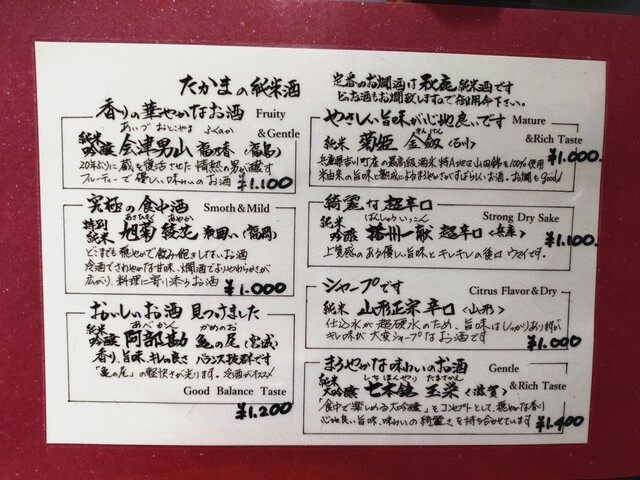 たかまの純米酒
香りの華やかなお酒 Fruity &Gentle
あいづ おとこやま ふくのか
純米吟醸 会津男山 福乃香 (福島)
20年ぶりに蔵を復活させた情熱の男が醸す
フルーティーで優しい味わいのお酒
¥1.100
究極の食中酒 Smoth & Mild
あさひきく あやか
特別純米 旭菊 綾花 (福岡)
どこまでも穏やかで飲み飽きしないお酒
冷酒でさわやかな甘味、燗酒でよりやわらかさが
広がり、料理に寄り添うお酒
¥1.000
おいしいお酒 見つけました
あべかん かめのお
純米吟醸 阿部勘 亀の尾 (宮城)
香り、旨味、キレの良さ バランス抜群です
「亀の尾」の軽快さが光ります。冷酒がオススメ
Good Balance Taste
¥1.200
定番のお燗酒は秋鹿純米酒です
どのお酒もお燗致しますので御用命下さい。
やさしい旨味が心地良いです Mature &Rich Taste
きんけん
純米 菊姫 金劔 (石川)
¥1.000
兵庫県吉川町産の最高級酒米 特A地区山田錦を100%使用
米由来の旨味と熟成によるまろやかさがすばらしいお酒。お燗も good
綺麗な超辛口 Strong Dry Sake
ばんしゅういっこん
純米吟醸 播州一献 超辛口 <兵庫>
¥1.100
上質感のある優しい旨味とキレキレの後口 ウマイです。
シャープです Citrus Flavor & Dry
純米 山形正宗 辛口 <山形>
仕込水が超硬水のため、旨味はしっかりありますが
キレ味が大変シャープなお酒です
¥1.000
まろやかな味わいのお酒 Gentle &Rich Taste
しちほんやり たまさかえ
純米大吟醸 七本鎗 玉栄 <滋賀>
「食中で楽しめる大吟醸」をコンセプトとして、穏やかな香り
心地良い旨味、味わいの綺麗さを持ち合わせています
¥1.400